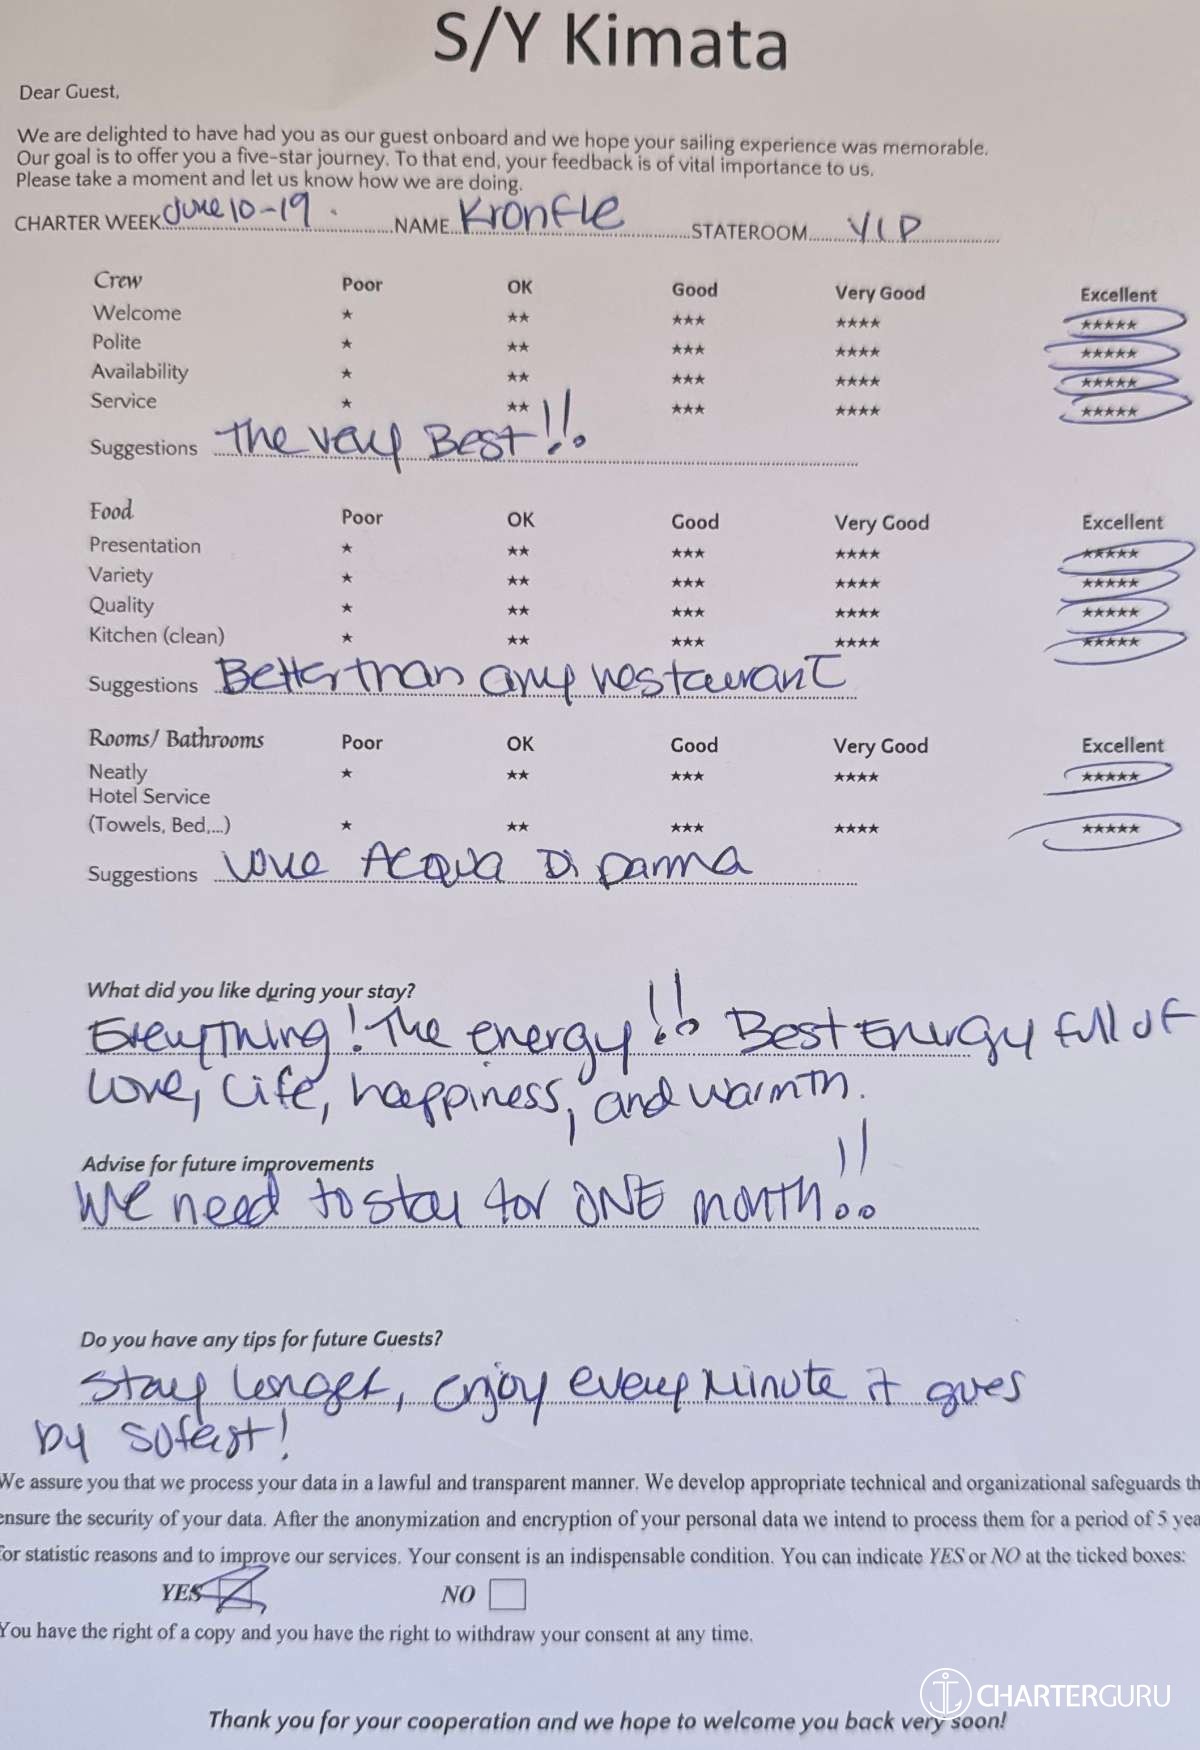 S/Y Kimata
Dear Guest,
We are delighted to have had you as our guest onboard and we hope your sailing experience was memorable.
Our goal is to offer you a five-star journey. To that end, your feedback is of vital importance to us.
Please take a moment and let us know how we are doing.
CHARTER WEEK June 10-19. NAME Kronfle STATEROOM VIP
Crew Poor OK Good Very Good Excellent
Welcome ★ ★★ ★★★ ★★★★ ★★★★★
Polite ★ ★★ ★★★ ★★★★ ★★★★★
Availability ★ ★★ ★★★ ★★★★ ★★★★★
Service ★ ★★ ★★★ ★★★★ ★★★★★
Suggestions The very Best!!
Food Poor OK Good Very Good Excellent
Presentation ★ ★★ ★★★ ★★★★ ★★★★★
Variety ★ ★★ ★★★ ★★★★ ★★★★★
Quality ★ ★★ ★★★ ★★★★ ★★★★★
Kitchen (clean) ★ ★★ ★★★ ★★★★ ★★★★★
Suggestions Better than any restaurant
Rooms/ Bathrooms Poor OK Good Very Good Excellent
Neatly ★ ★★ ★★★ ★★★★ ★★★★★
Hotel Service
(Towels, Bed,...) ★ ★★ ★★★ ★★★★ ★★★★★
Suggestions Love Acqua Di Parma
What did you like during your stay?
Everything! The energy!! Best Energy full of
love, life, happiness, and warmth.
Advise for future improvements
We need to stay for ONE month!!
Do you have any tips for future Guests?
Stay longer, enjoy every minute it goes
by so fast!
We assure you that we process your data in a lawful and transparent manner. We develop appropriate technical and organizational safeguards th
ensure the security of your data. After the anonymization and encryption of your personal data we intend to process them for a period of 5 yea
for statistic reasons and to improve our services. Your consent is an indispensable condition. You can indicate YES or NO at the ticked boxes:
YES NO
You have the right of a copy and you have the right to withdraw your consent at any time.
CHARTERGURU
Thank you for your cooperation and we hope to welcome you back very soon!